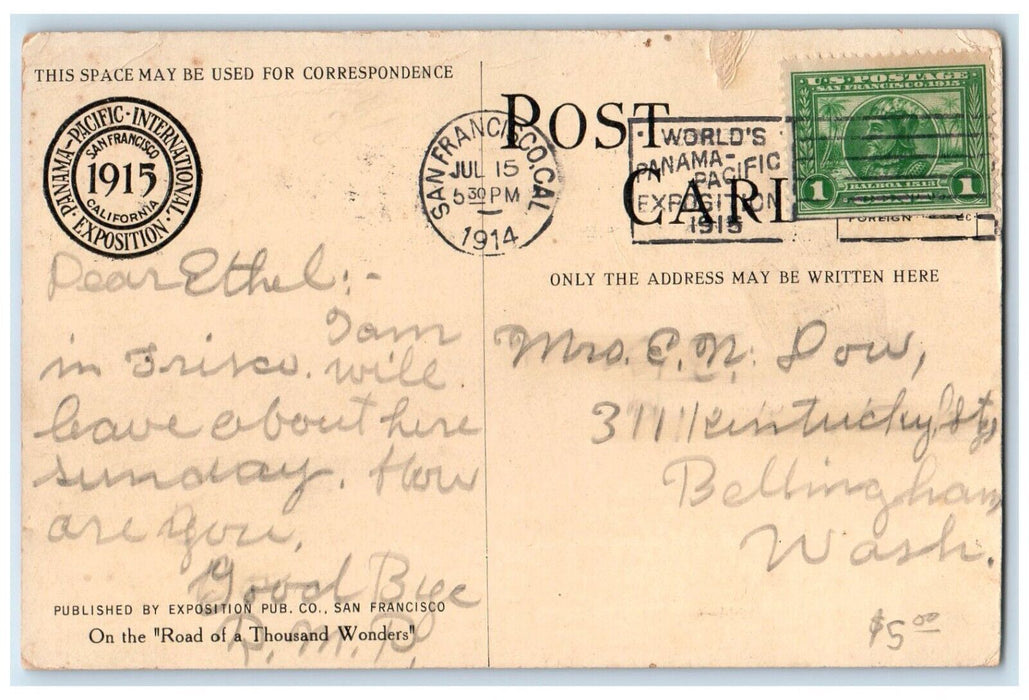 THIS SPACE MAY BE USED FOR CORRESPONDENCE
PANAMA-PACIFIC-INTERNATIONAL
EXPOSITION
SAN FRANCISCO
1915
CALIFORNIA
Dear Ethel:-
I am
in Frisco. will
leave about here
sunday. How
are you.
Good Bye
R.M.P.
PUBLISHED BY EXPOSITION PUB. CO., SAN FRANCISCO
On the "Road of a Thousand Wonders"
POST
CARD
SAN FRANCISCO, CAL.
JUL 15
5 30 PM
1914
WORLD'S
PANAMA-
PACIFIC
EXPOSITION
1915
U·S·POSTAGE
SAN FRANCISCO 1915
BALBOA 1513
1 1
FOREIGN 2C
ONLY THE ADDRESS MAY BE WRITTEN HERE
Mrs. E. N. Dow,
311 Kentucky St,
Bellingham
Wash.
$5.00